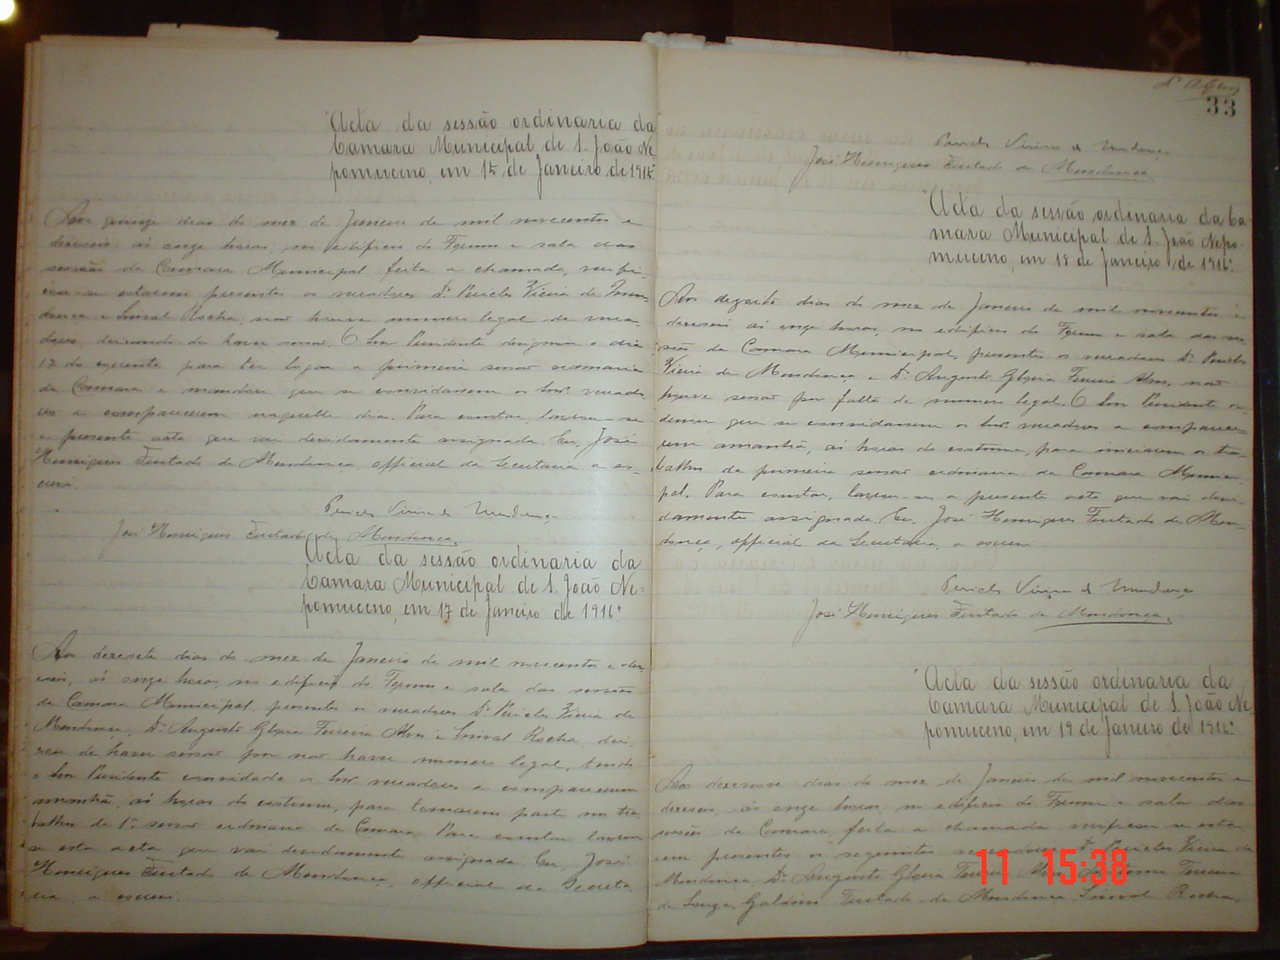 Acta da sessão ordinaria da
Camara Municipal de S. João Ne-
pomuceno, em 15 de Janeiro de 1916.
Aos quinze dias do mez de Janeiro de mil novecentos e
dezeseis, ás onze horas, no edificio do Forum e sala das
sessões da Camara Municipal, feita a chamada, verifi-
cou-se estarem presentes os vereadores Dr. Pericles Vieira de Men-
donça e Rocha; não houve numero legal de verea-
dores, deixando de haver sessão. O Snr. Presidente designou o dia
17 do corrente para ter logar a primeira sessão ordinaria
da Camara e mandou que se convidassem os Snrs. vereado-
res a comparecerem naquelle dia. Para constar, lavrou-se
a presente acta que vai devidamente assignada. Eu, José
Henriques Furtado de Mendonça, official da Secretaria a es-
crevi.
Pericles Vieira de Mendonça
José Henriques Furtado de Mendonça.
Acta da sessão ordinaria da
Camara Municipal de S. João Ne-
pomuceno, em 17 de Janeiro de 1916.
Aos dezesete dias do mez de Janeiro de mil novecentos e dez-
eseis, ás onze horas, no edificio do Forum e sala das sessões
da Camara Municipal presentes os vereadores Dr. Pericles Vieira de
Mendonça, Dr. Augusto Gloria Ferreira Alves e Rocha, dei-
xou de haver sessão por não haver numero legal, tendo
o Snr. Presidente convidado os Snrs. vereadores a comparecerem
amanhã, ás horas do costume, para tomarem parte nos tra-
balhos da 1ª sessão ordinaria da Camara. Para constar lavrou-
se esta acta que vai devidamente assignada. Eu, José
Henriques Furtado de Mendonça, official da Secreta-
ria, a escrevi.
33
Pericles Vieira de Mendonça
José Henriques Furtado de Mendonça.
Acta da sessão ordinaria da Ca-
mara Municipal de S. João Nepo-
muceno, em 18 de Janeiro de 1916.
Aos dezoito dias do mez de Janeiro de mil novecentos e
dezeseis, ás onze horas, no edificio do Forum e sala das ses-
sões da Camara Municipal, presentes os vereadores Dr. Pericles
Vieira de Mendonça e Dr. Augusto Gloria Ferreira Alves, não
houve sessão por falta de numero legal. O Snr. Presidente or-
denou que se convidassem os Snrs. vereadores a comparece-
rem amanhã, ás horas do costume, para iniciarem os tra-
balhos da primeira sessão ordinaria da Camara Munici-
pal. Para constar, lavrou-se a presente acta que vai devi-
damente assignada. Eu, José Henriques Furtado de Men-
donça, official da Secretaria, a escrevi.
Pericles Vieira de Mendonça
José Henriques Furtado de Mendonça.
Acta da sessão ordinaria da
Camara Municipal de S. João Ne-
pomuceno, em 19 de Janeiro de 1916.
Aos dezenove dias do mez de Janeiro de mil novecentos e
dezeseis, ás onze horas, no edificio do Forum e sala das
sessões da Camara, feita a chamada verificou-se esta-
rem presentes os seguintes vereadores: Dr. Pericles Vieira de
Mendonça, Dr. Augusto Gloria Ferreira Alves, Ferreira
de Souza, Galdino Furtado de Mendonça, Rocha,
11 15:38